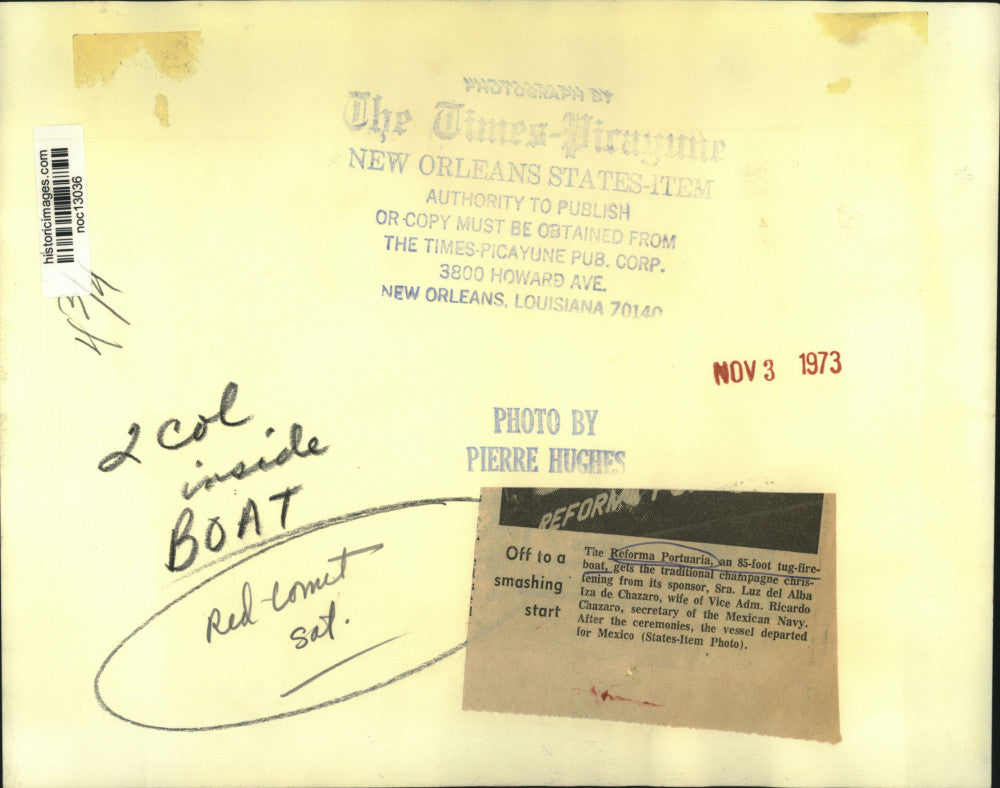 PHOTOGRAPH BY
The Times-Picayune
NEW ORLEANS STATES-ITEM
AUTHORITY TO PUBLISH
OR COPY MUST BE OBTAINED FROM
THE TIMES-PICAYUNE PUB. CORP.
3800 HOWARD AVE.
NEW ORLEANS, LOUISIANA 70140
historicimages.com
noc13036
NOV 3 1973
2 col
inside
BOAT
Red-comet
sat.
PHOTO BY
PIERRE HUGHES
REFORM
Off to a
smashing
start
The Reforma Portuaria, an 85-foot tug-fire-
boat, gets the traditional champagne chris-
tening from its sponsor, Sra. Luz del Alba
Iza de Chazaro, wife of Vice Adm. Ricardo
Chazaro, secretary of the Mexican Navy.
After the ceremonies, the vessel departed
for Mexico (States-Item Photo).